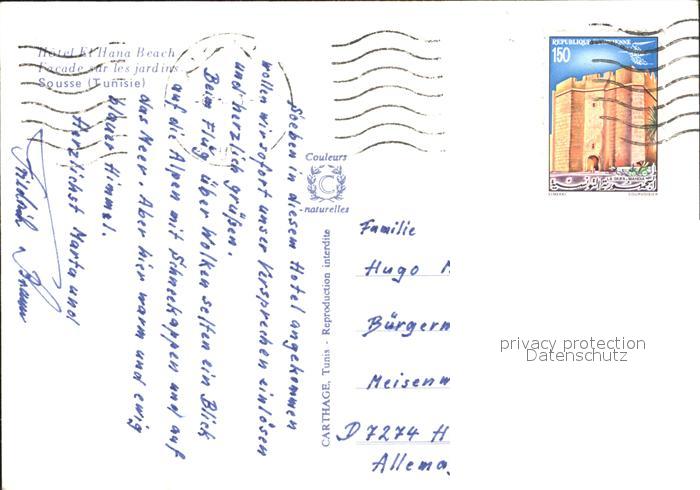 Hotel El Hana Beach
Façade sur les jardins
Sousse (Tunisie)
Soeben in diesem Hotel angekommen
wollen wir sofort unser Versprechen einlösen
und herzlich grüßen.
Beim Flug über Wolken selten ein Blick
auf die Alpen mit Schneekappen und auf
das Meer. Aber hier warm und ewig
blauer Himmel.
Herzlichst Marta und
Friedrich
Couleurs
C
naturelles
CARTHAGE, Tunis - Reproduction interdite
REPUBLIQUE TUNISIENNE
150
الجمهورية التونسية
Familie
Hugo
Bürgerm
Meisenw
D 7274 H
Allema
privacy protection
Datenschutz